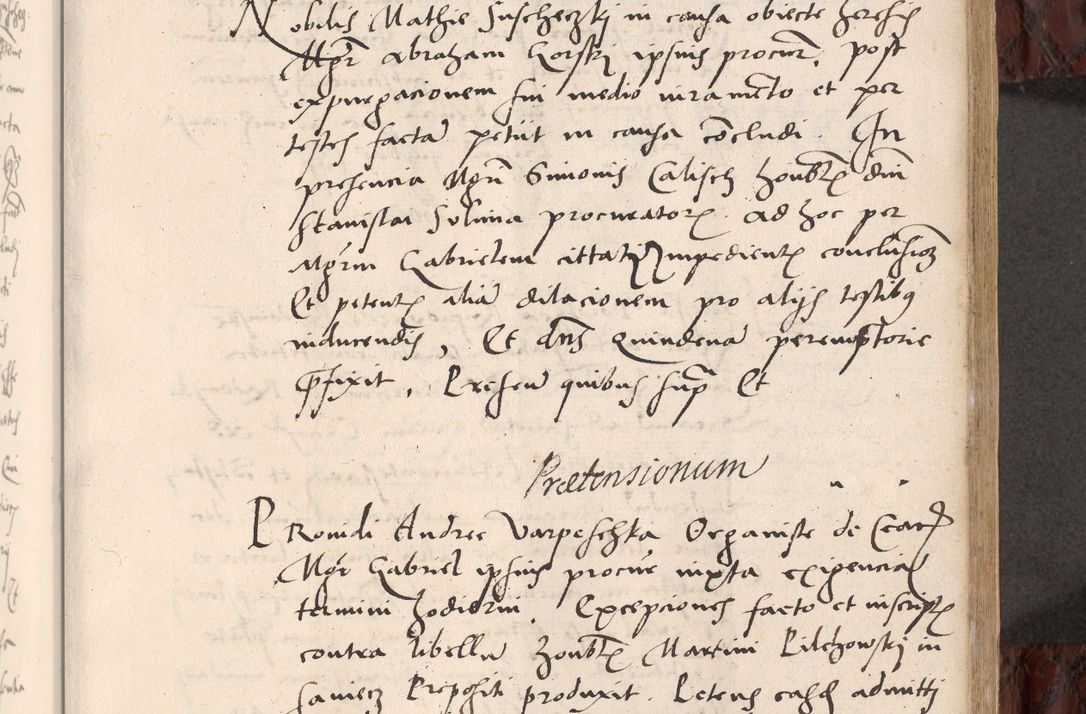 Nobilis Mathie Suscheczkj in causa obiecte heresis
Mgr Abraham Gorskj ipsius procur. post
expurgacionem sui medio iuramento et per
testes facta petiit in causa concludi. In
presencia Mgri Simonis Calisch honbl dni
Stanislai Solima procurator. ad hoc per
Mgrm Gabrielem cittati impedient conclusione
Et petent alia dilacionem pro alijs testibus
inducendis, Et dns Quindena peremptorie
prefixit, Presen quibus supr Et
Prætensionum
Prouidi Andree Varpeschka Organiste de
Mgr Gabriel ipsius procur iuxta exigencia
termini hodierni. Excepciones facto et inscript
contra libellu honbl Martini Pilchowskj in
Saniecz Prepositi produxit. Petens easd admitti